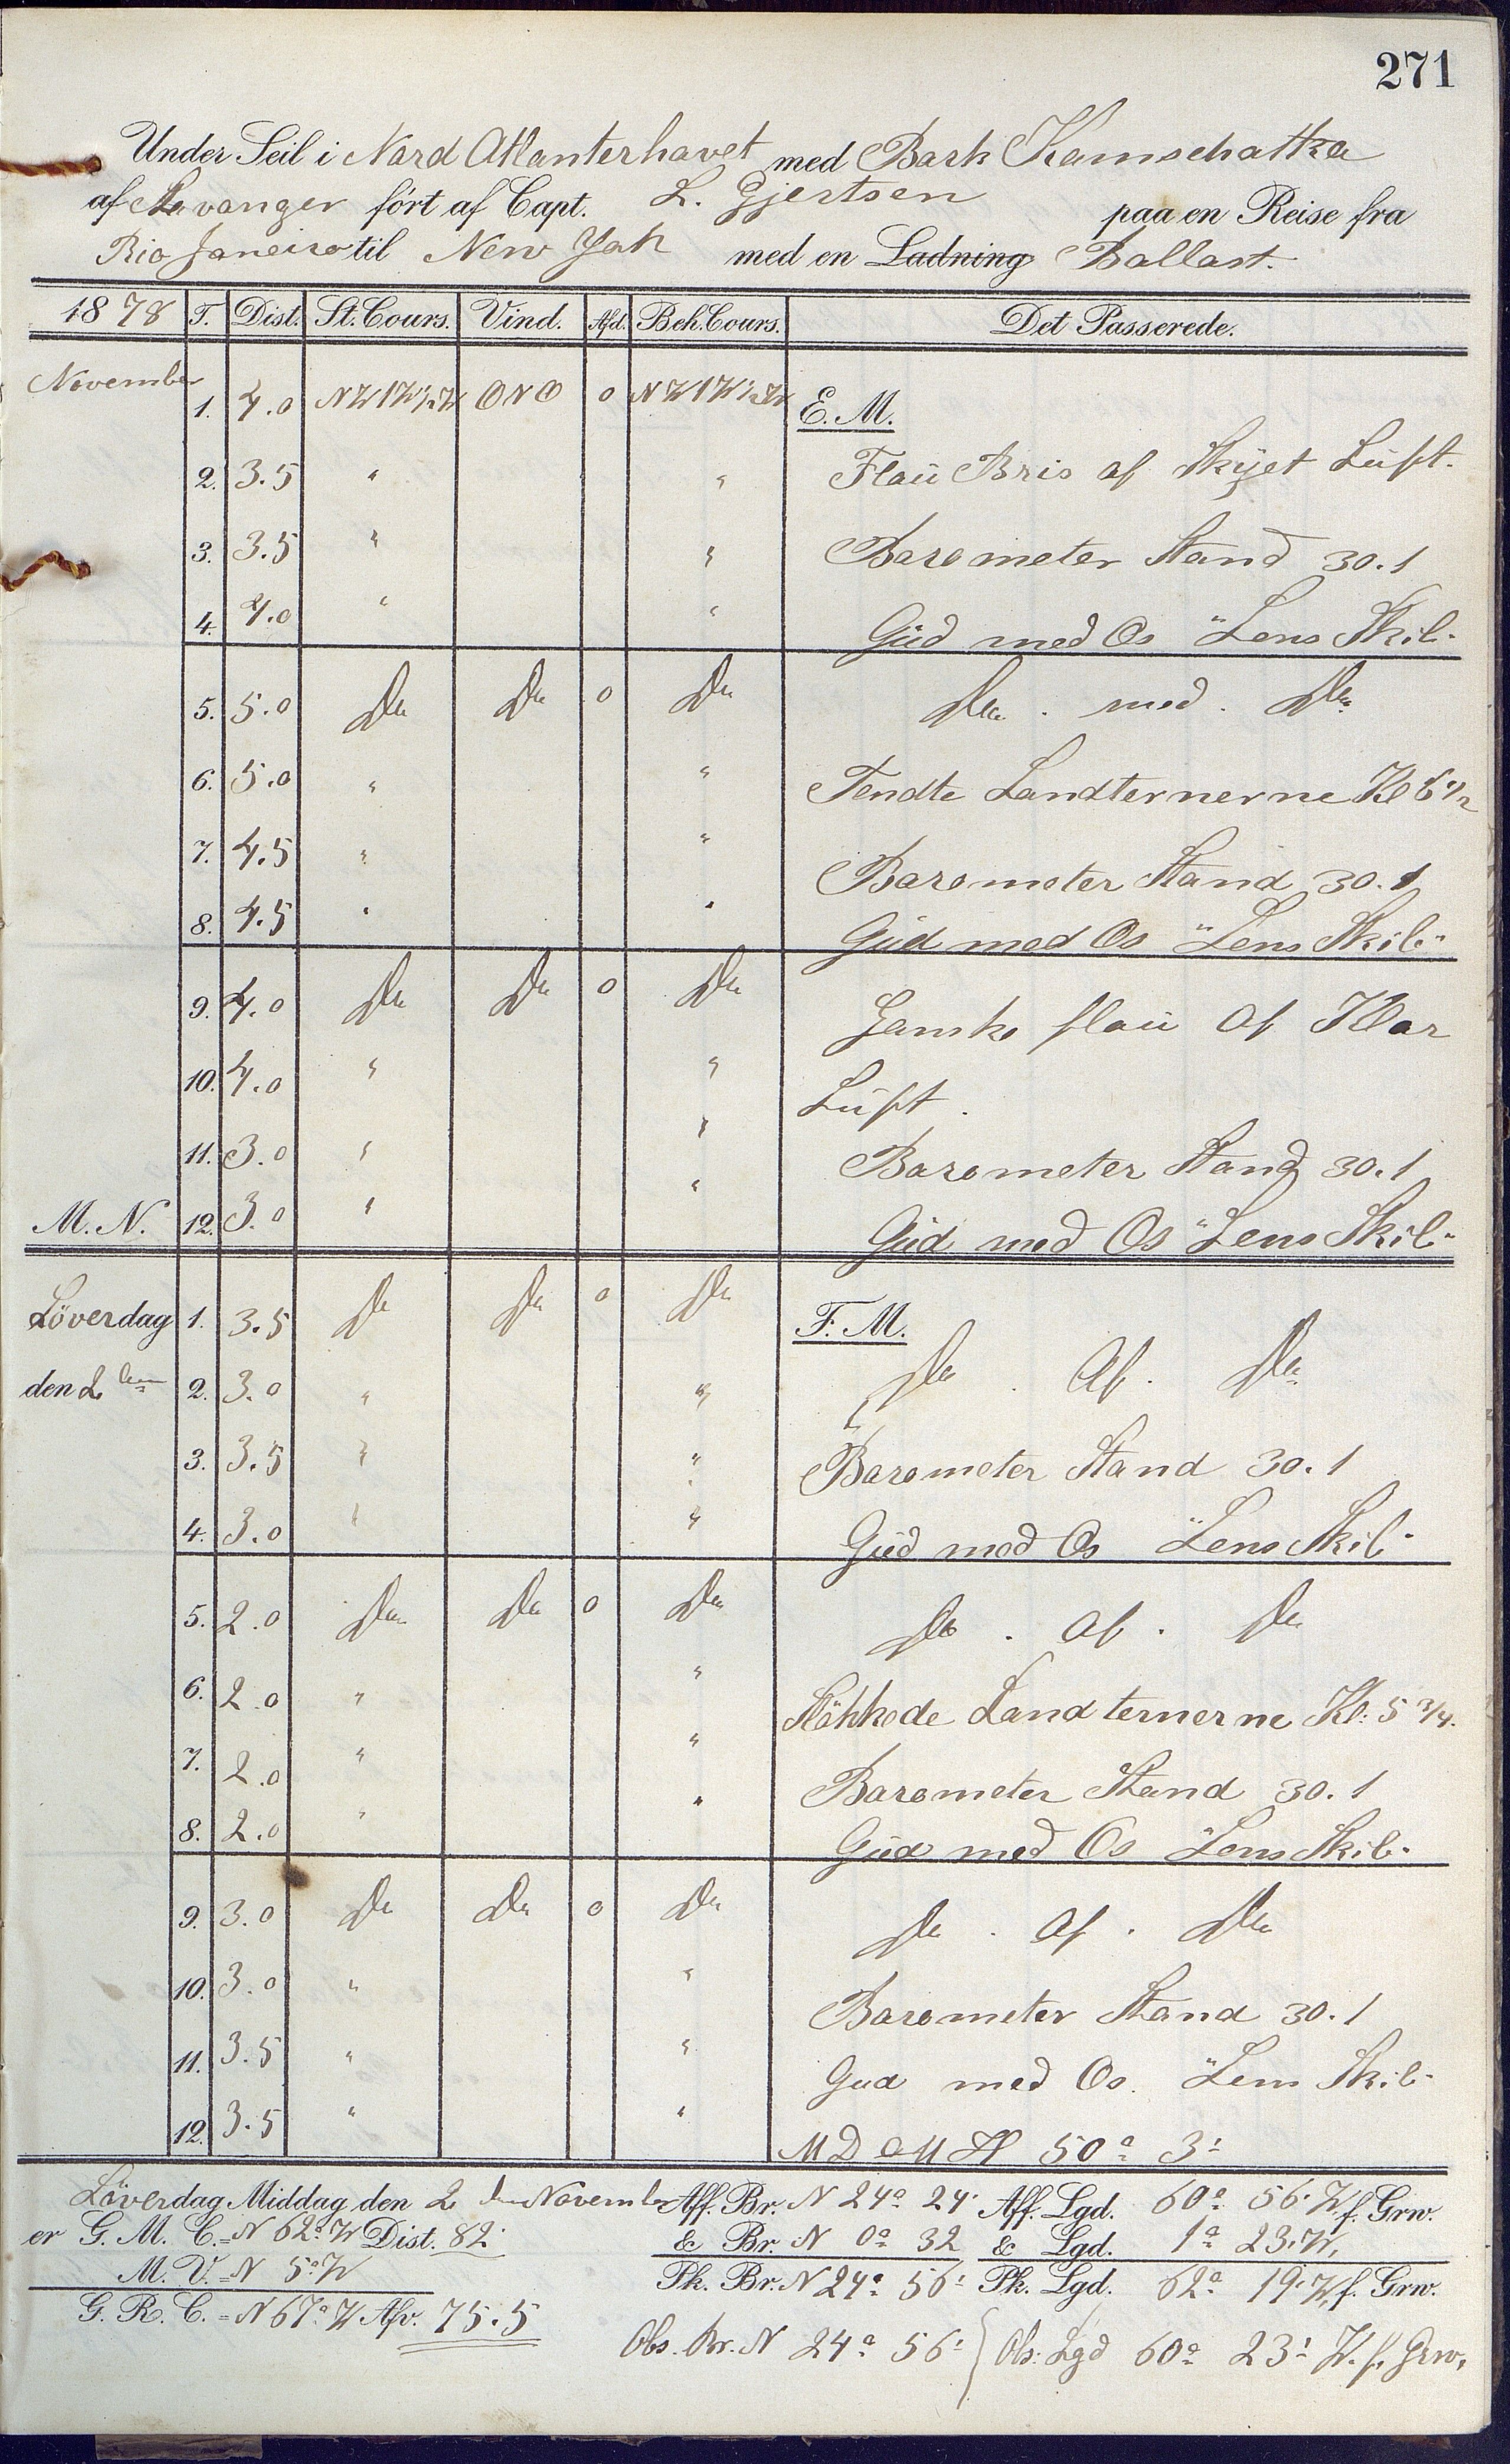 271
Under Seil i Nord Atlanterhavet med Bark Kamschatka
af Levanger fört af Capt. L. Gjertsen paa en Reise fra
Rio Janeiro til New York med en Ladning Ballast.
1878 T. Dist. St. Cours. Vind. Afd. Beh. Cours. Det Passerede.
November 1. 4.0 NW1W½W ONO 0 NW1W½W E. M.
2. 3.5 " " Flaü Bris af Skyet Lüft.
3. 3.5 " " Barometer Stand 30.1
4. 4.0 " " Güd med Os "Lens Skib"
5. 5.0 Do Do 0 Do Do . med . Do
6. 5.0 " " Tendte Landternerne Kl 6½
7. 4.5 " " Barometer Stand 30.1
8. 4.5 " " Güd med Os "Lens Skib"
9. 4.0 Do Do 0 Do Ganske flaü Af Klar
10. 4.0 " " Lüft.
11. 3.0 " " Barometer Stand 30.1
M. N. 12. 3.0 " " Güd med Os "Lens Skib"
Löverdag 1. 3.5 Do Do 0 Do F. M.
den 2den 2. 3.0 " " Do . Af . Do
3. 3.5 " " Barometer Stand 30.1
4. 3.0 " " Güd med Os "Lens Skib"
5. 2.0 Do Do 0 Do Do . Af . Do
6. 2.0 " " Slökkede Landternerne Kl: 5 3/4.
7. 2.0 " " Barometer Stand 30.1
8. 2.0 " " Güd med Os "Lens Skib"
9. 3.0 Do Do 0 Do Do . Af . Do
10. 3.0 " " Barometer Stand 30.1
11. 3.5 " " Gud med Os. "Lens Skib"
12. 3.5 " " 50° 3'
Löverdag Middag den 2den November Aff. Br. N 24° 24' Aff. Lgd. 60° 56' W f. Grw.
er G. M. C. = N 62° W Dist. 82' & Br. N 0° 32 & Lgd. 1° 23' W,
M. V. = N 5° W Pk. Br. N 24° 56' Pk. Lgd. 62° 19' W f. Grw.
G. R. C. = N 67° W Afv. 75.5
Obs. Br. N 24° 56' } Obs: Lgd 60° 23' W. f. Grw.